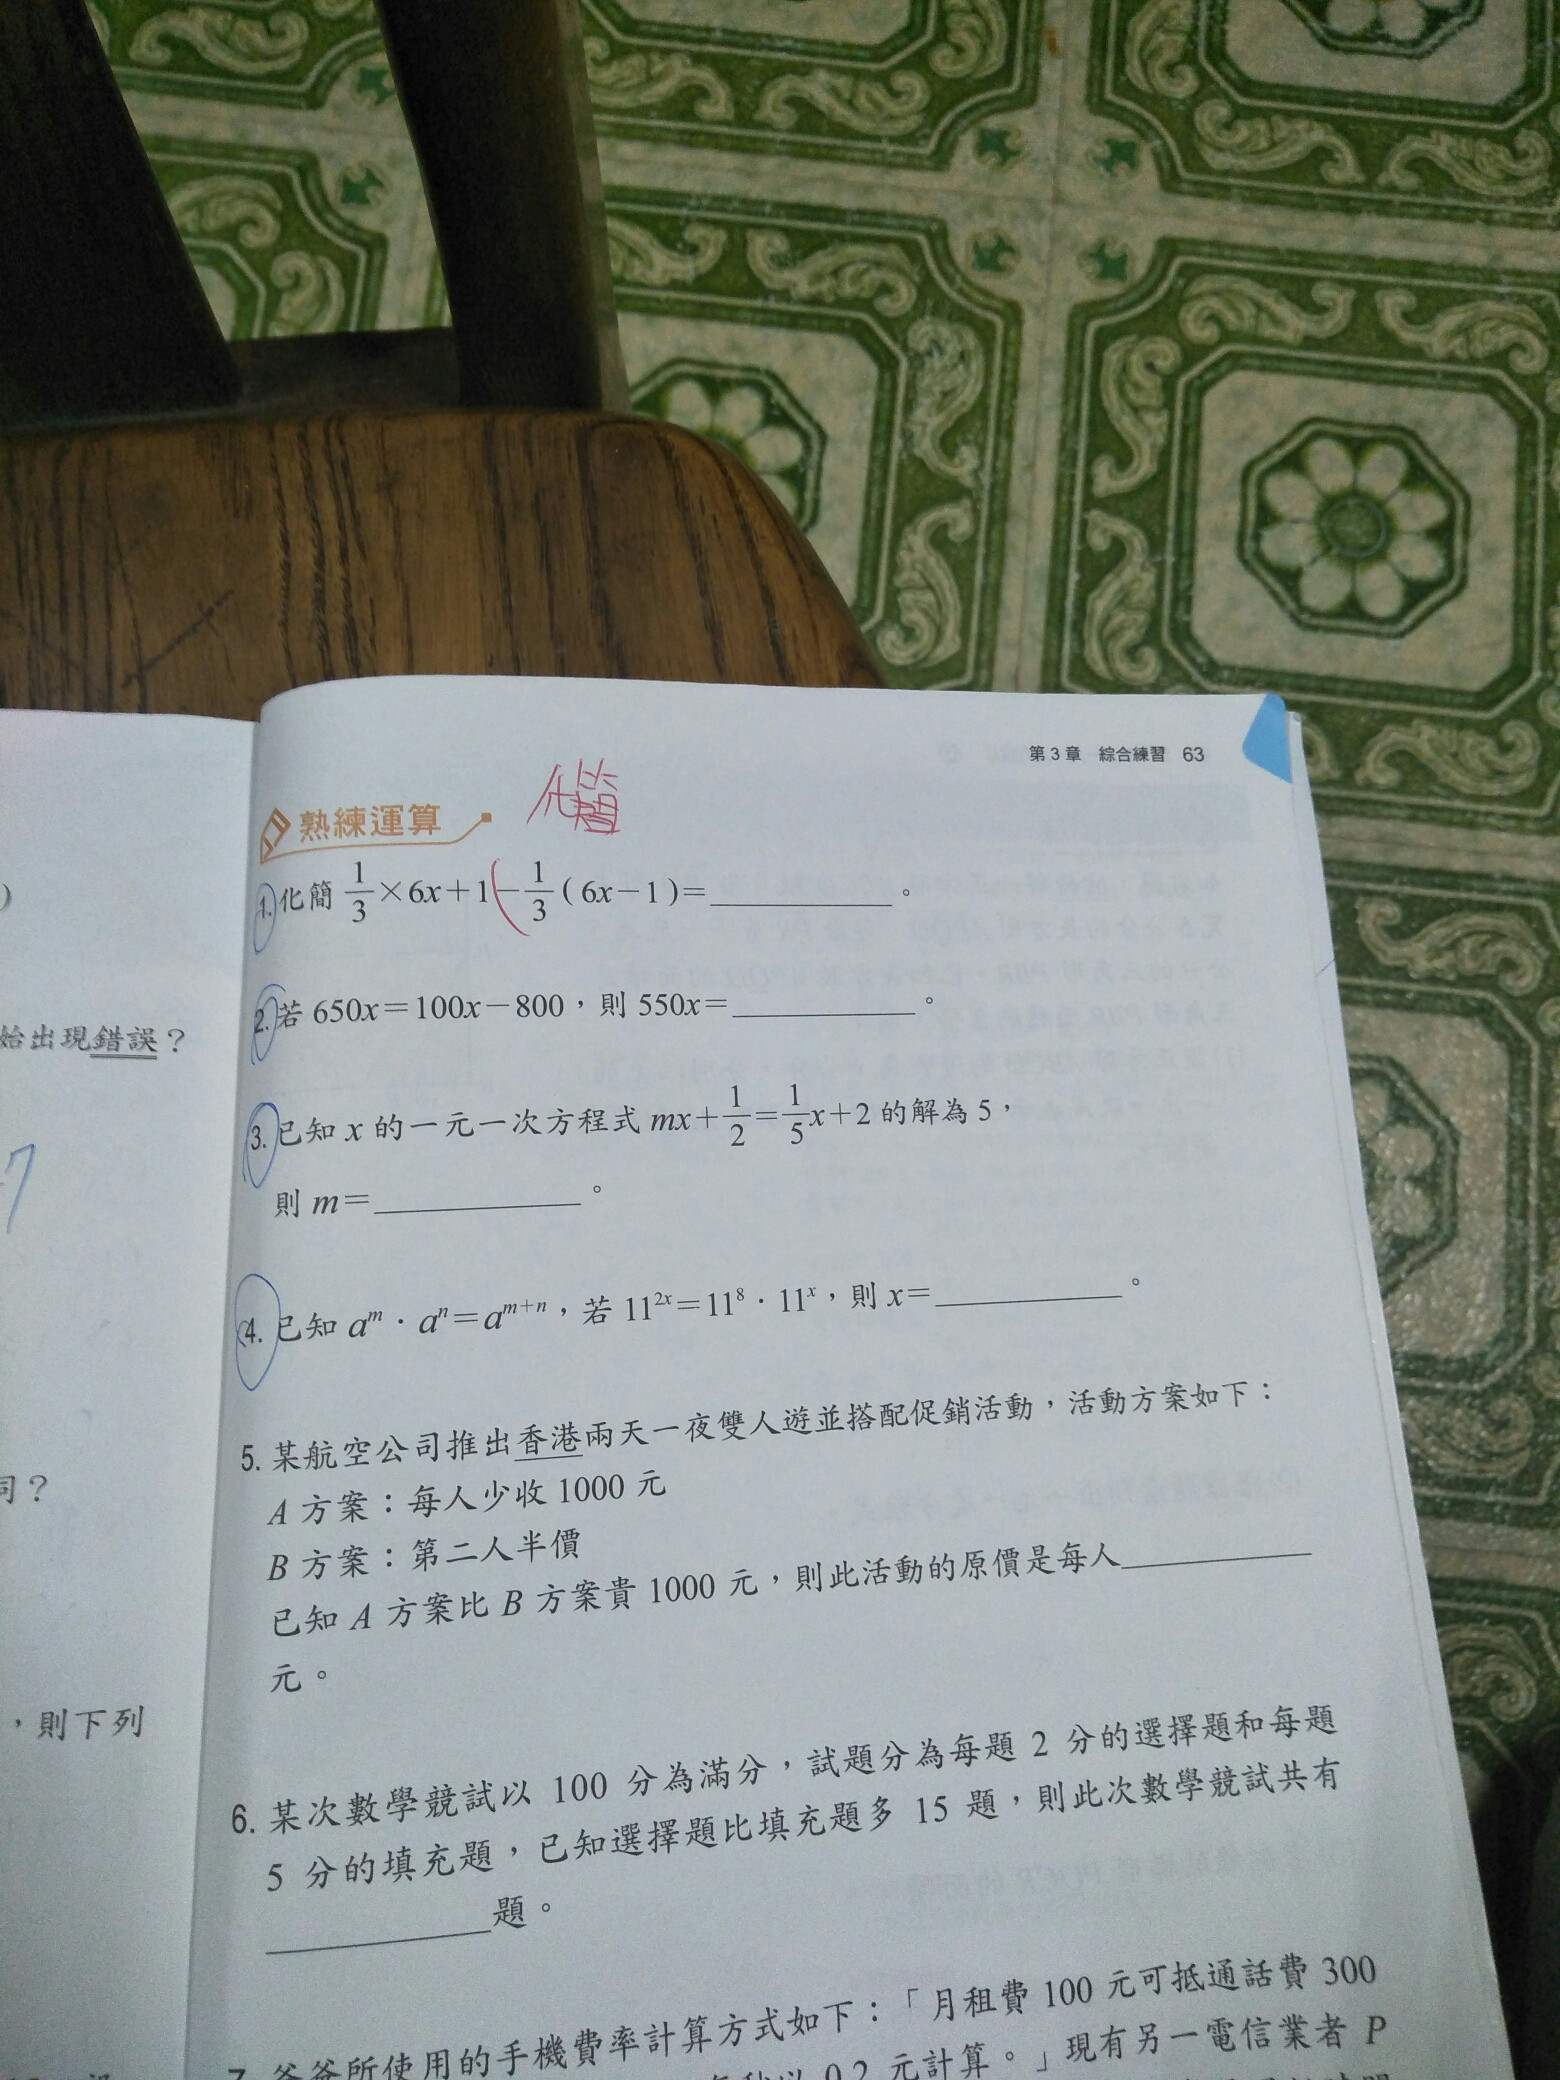 第 3 章 綜合練習 63
熟練運算
化簡
1. 化簡 1/3×6x+1-1/3(6x-1)=__________。
2. 若 650x=100x-800，則 550x=__________。
3. 已知 x 的一元一次方程式 mx+1/2=1/5x+2 的解為 5，
則 m=__________。
4. 已知 aᵐ·aⁿ=aᵐ⁺ⁿ，若 11²ˣ=11⁸·11ˣ，則 x=__________。
5. 某航空公司推出香港兩天一夜雙人遊並搭配促銷活動，活動方案如下：
A 方案：每人少收 1000 元
B 方案：第二人半價
已知 A 方案比 B 方案貴 1000 元，則此活動的原價是每人__________
元。
6. 某次數學競試以 100 分為滿分，試題分為每題 2 分的選擇題和每題
5 分的填充題，已知選擇題比填充題多 15 題，則此次數學競試共有
__________題。
7. 爸爸所使用的手機費率計算方式如下：「月租費 100 元可抵通話費 300
0.2 元計算。」現有另一電信業者 P
)
始出現錯誤？
7
同？
，則下列